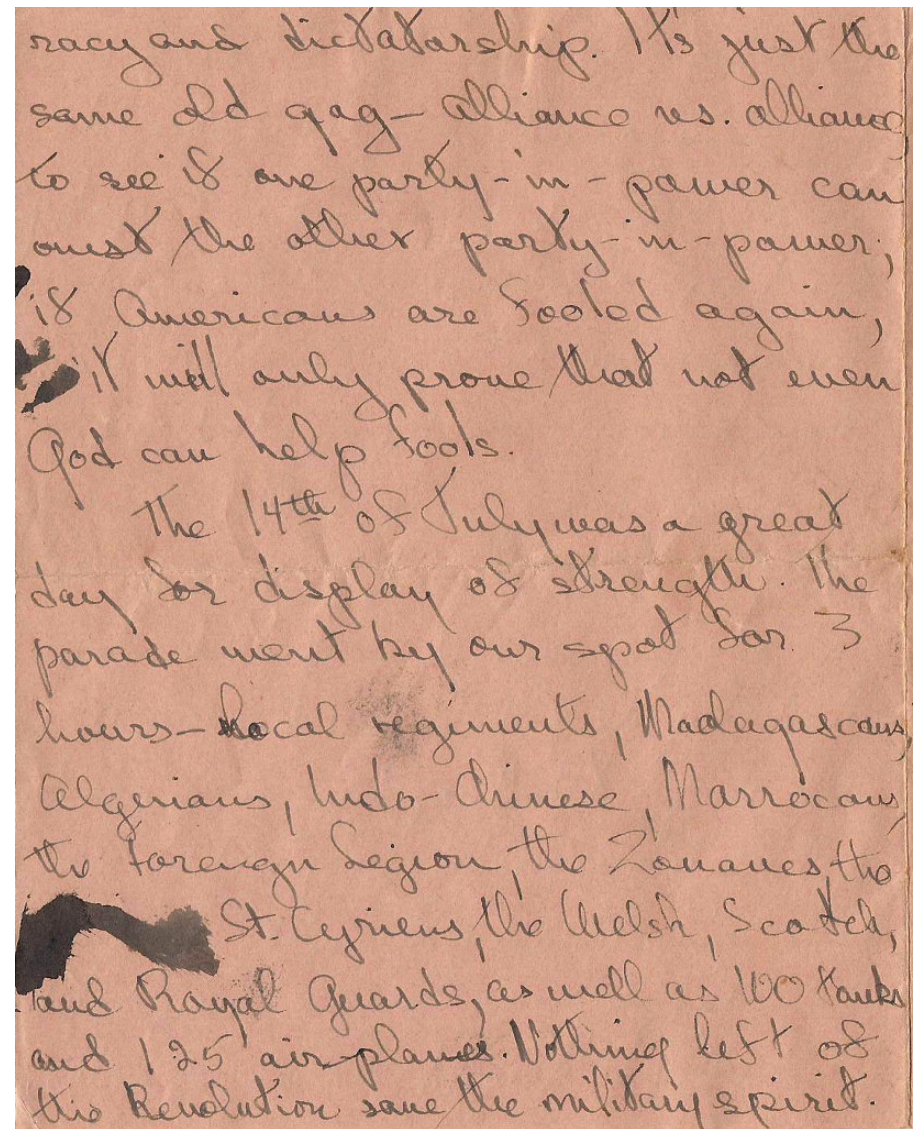 racy and dictatorship. It's just the
same old gag - alliance vs. alliance
to see if one party-in-power can
oust the other party-in-power;
if Americans are fooled again,
it will only prove that not even
God can help fools.
The 14th of July was a great
day for display of strength. The
parade went by our spot for 3
hours - local regiments, Madagascans,
Algerians, Indo-Chinese, Marrocans,
the Foreign Legion, the Zouaves, the
St. Cyriens, the Welsh, Scotch,
and Royal Guards, as well as 100 tanks
and 125 air-planes. Nothing left of
this Revolution save the military spirit.